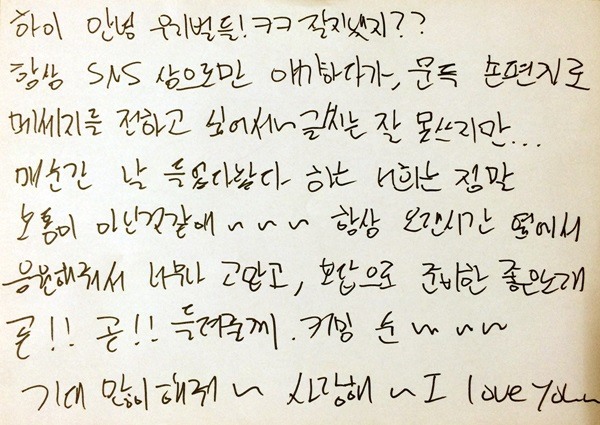 하이 안녕 우리벌들! ㅋㅋ 잘지냈지??
항상 SNS 상으로만 얘기하다가, 문득 손편지로
메세지를 전하고 싶어서~ 글씨는 잘 못쓰지만...
매순간 날 들었다놨다 하는 너희는 정말
보통이 아닌것같애 ~ ~ ~ 항상 오랜시간 옆에서
응원해줘서 너무나 고맙고, 보답으로 준비한 좋은노래
곧!! 곧!! 들려줄께. 커밍 순 ~ ~ ~
기대 많이해줘 ~ 사랑해 ~ I love you~